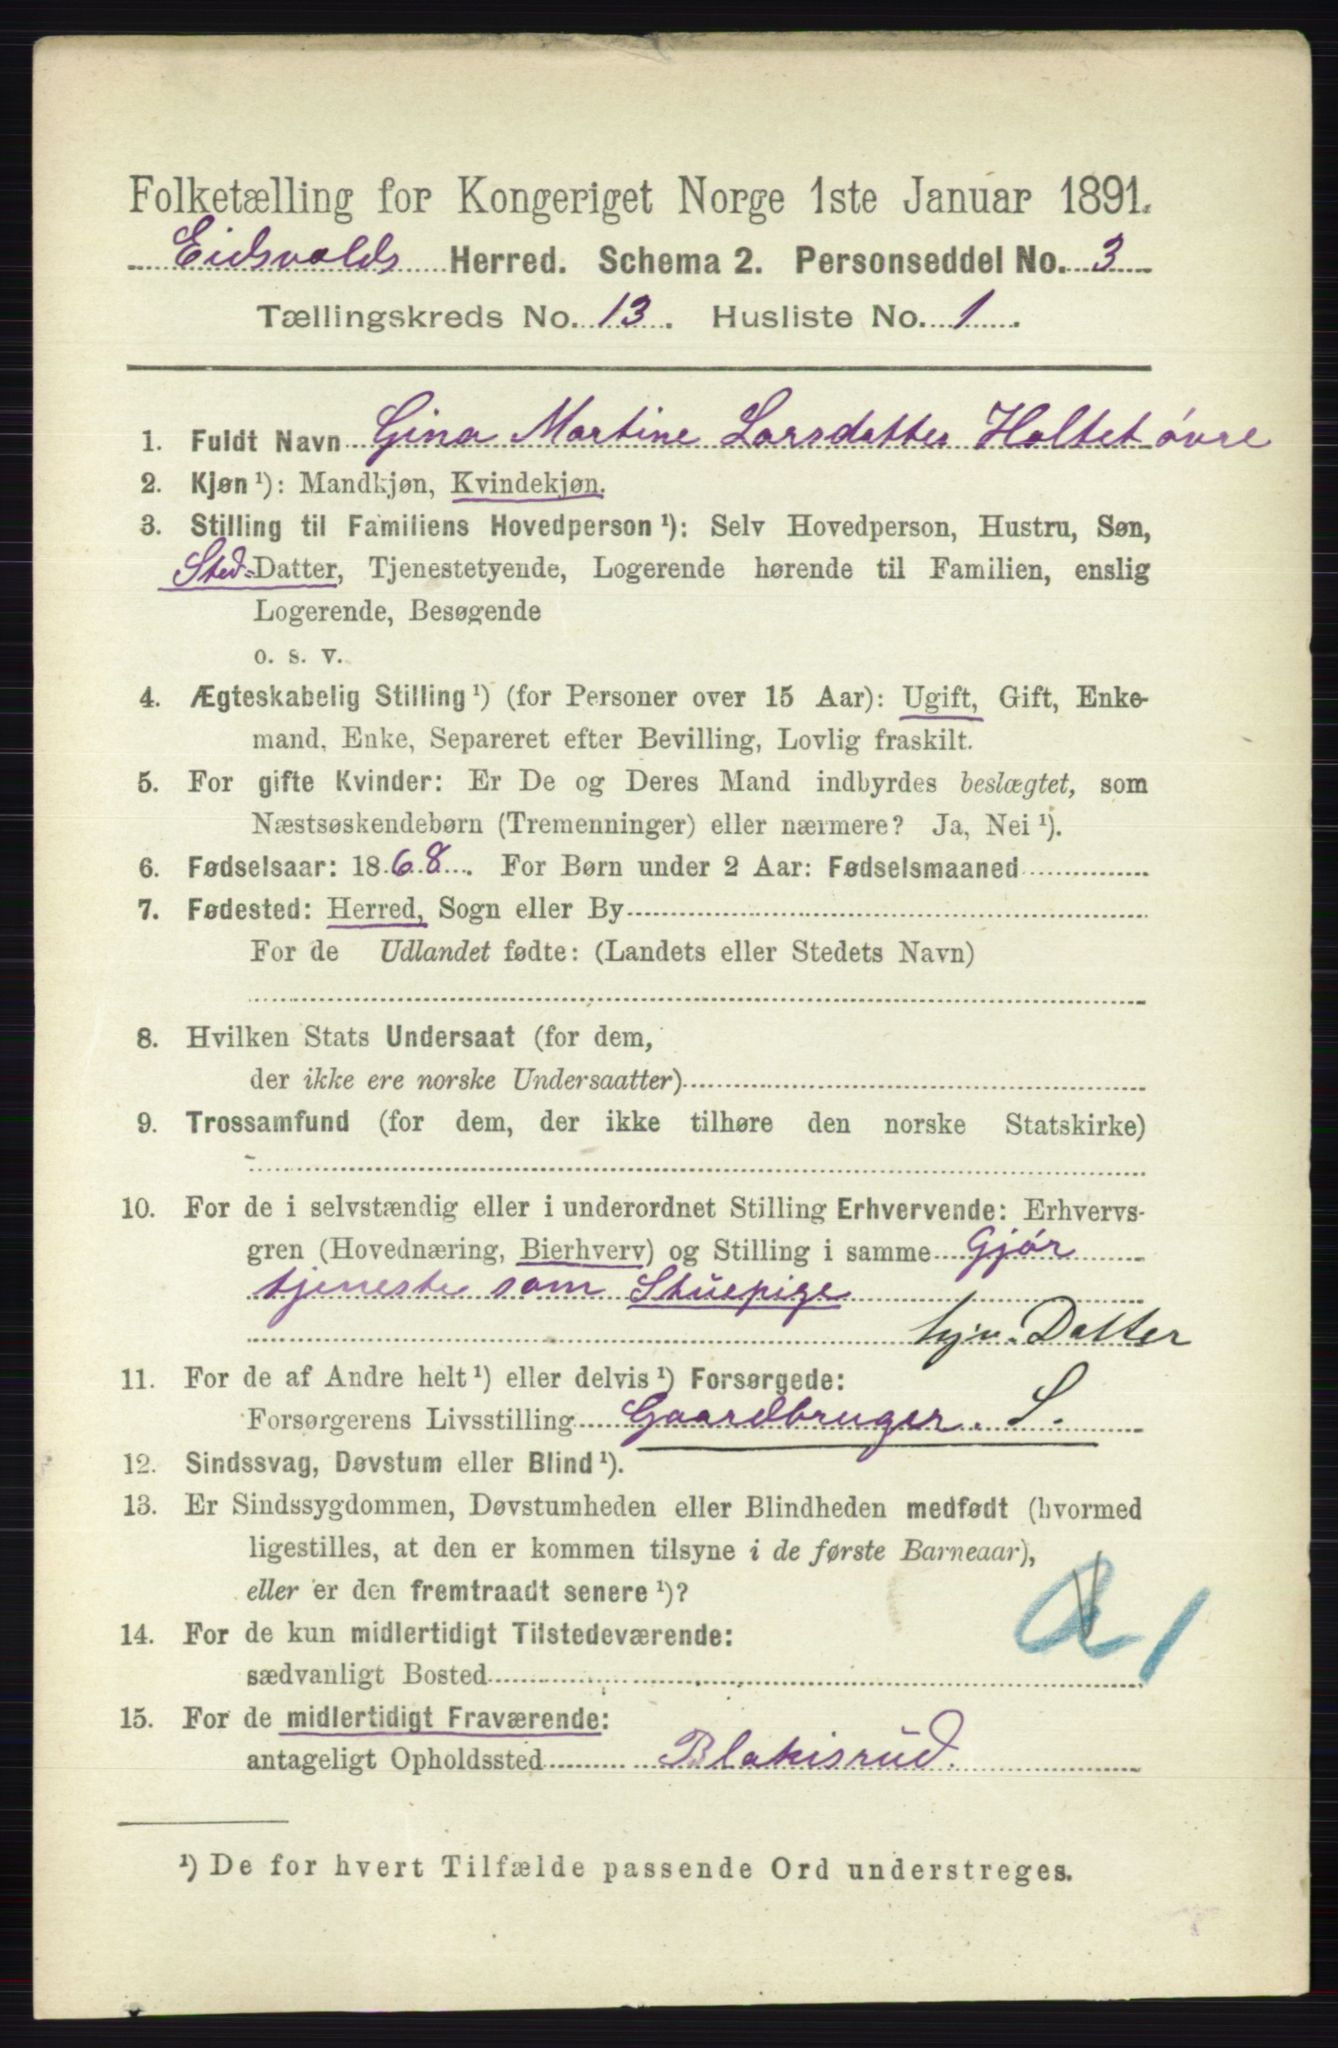 Folketælling for Kongeriget Norge 1ste Januar 1891.
Eidsvolds Herred. Schema 2. Personseddel No. 3
Tællingskreds No. 13. Husliste No. 1.
1. Fuldt Navn Gina Martine Larsdatter Holtet øvre
2. Kjøn ¹): Mandkjøn, Kvindekjøn.
3. Stilling til Familiens Hovedperson ¹): Selv Hovedperson, Hustru, Søn,
Sted-Datter, Tjenestetyende, Logerende hørende til Familien, enslig
Logerende, Besøgende
o. s. v.
4. Ægteskabelig Stilling ¹) (for Personer over 15 Aar): Ugift, Gift, Enke-
mand, Enke, Separeret efter Bevilling, Lovlig fraskilt.
5. For gifte Kvinder: Er De og Deres Mand indbyrdes beslægtet, som
Næstsøskendebørn (Tremenninger) eller nærmere? Ja, Nei ¹).
6. Fødselsaar: 1868. For Børn under 2 Aar: Fødselsmaaned
7. Fødested: Herred, Sogn eller By
For de Udlandet fødte: (Landets eller Stedets Navn)
8. Hvilken Stats Undersaat (for dem,
der ikke ere norske Undersaatter)
9. Trossamfund (for dem, der ikke tilhøre den norske Statskirke)
10. For de i selvstændig eller i underordnet Stilling Erhvervende: Erhvervs-
gren (Hovednæring, Bierhverv) og Stilling i samme Gjør
tjeneste som Stuepige
Datter
11. For de af Andre helt ¹) eller delvis ¹) Forsørgede:
Forsørgerens Livsstilling Gaardbruger. S.
12. Sindssvag, Døvstum eller Blind ¹).
13. Er Sindssygdommen, Døvstumheden eller Blindheden medfødt (hvormed
ligestilles, at den er kommen tilsyne i de første Barneaar),
eller er den fremtraadt senere ¹)?
14. For de kun midlertidigt Tilstedeværende:
sædvanligt Bosted
15. For de midlertidigt Fraværende:
antageligt Opholdssted Blakisrud.
¹) De for hvert Tilfælde passende Ord understreges.